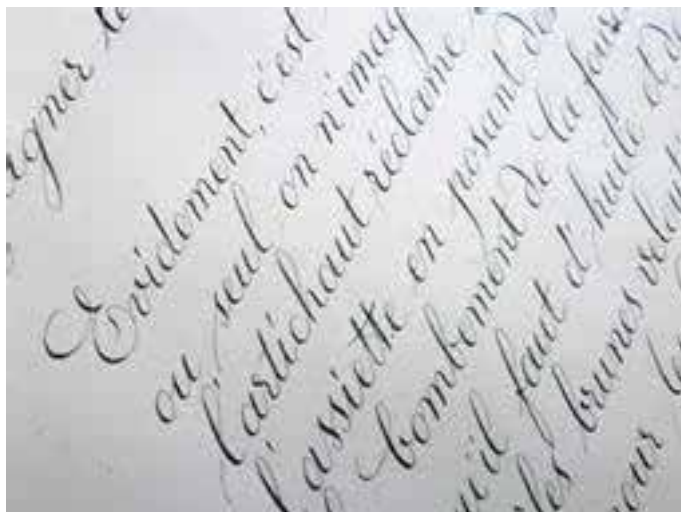 Evidemment, c'est
ou seul on n'imag
l'artichaut réclame
l'assiette en posant de
bombement de la fou
qu'il faut d'huile et d
les brunes velout
pour les